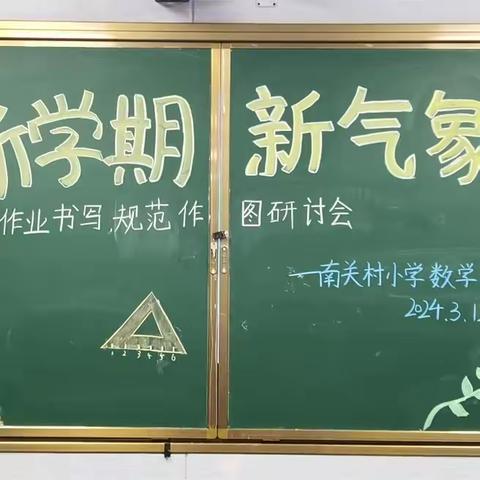 新学期 新气象
作业书写,规范作图研讨会
—南关村小学数学
2024.3.1
1 2 3 4 5 6